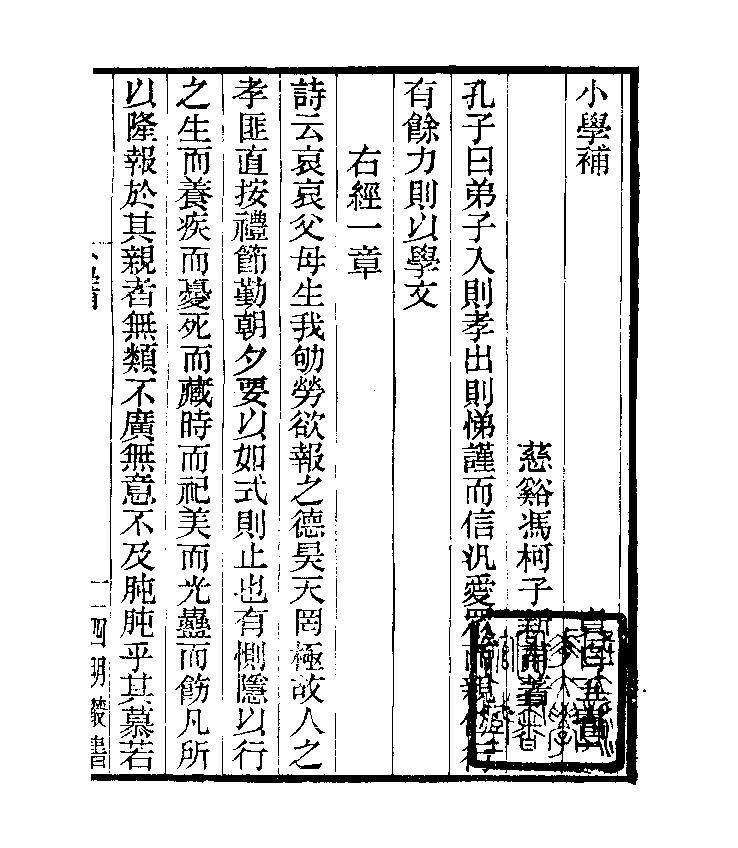 小學補 貞白五書
慈谿馮柯子新甫著
孔子曰弟子入則孝出則悌謹而信汎愛眾而親仁行
有餘力則以學文
右經一章
詩云哀哀父母生我劬勞欲報之德昊天罔極故人之
孝匪直按禮節勤朝夕要以如式則止也有惻隱以行
之生而養疾而憂死而藏時而祀美而光蠱而飭凡所
以隆報於其親者無類不廣無意不及肫肫乎其慕若
四明叢書